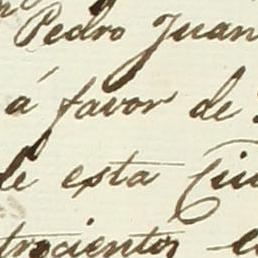 Pedro Juan
á favor de
de esta Ciu
trocientos